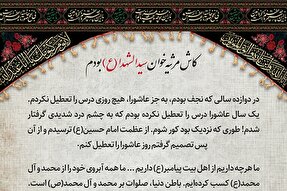 کاش مرثیه‌خوان سیدالشهدا(ع) بودم
در دوازده سالی که نجف بودم، به جز عاشورا، هیچ روزی درس را تعطیل نکردم.
یک سال عاشورا درس را تعطیل نکرده بودم که به چشم درد شدیدی گرفتار
شدم! طوری که نزدیک بود کور شوم. از عظمت امام حسین(ع) ترسیدم و از آن
پس تصمیم گرفتم روز عاشورا را تعطیل کنم.
ما هرچه داریم از اهل بیت پیامبر(ع) داریم ... ما همه آبروی خود را از محمد و آل
محمد(ع) کسب کرده‌ایم. باطن دنیا، صلوات بر محمد و آل محمد(ص) است.